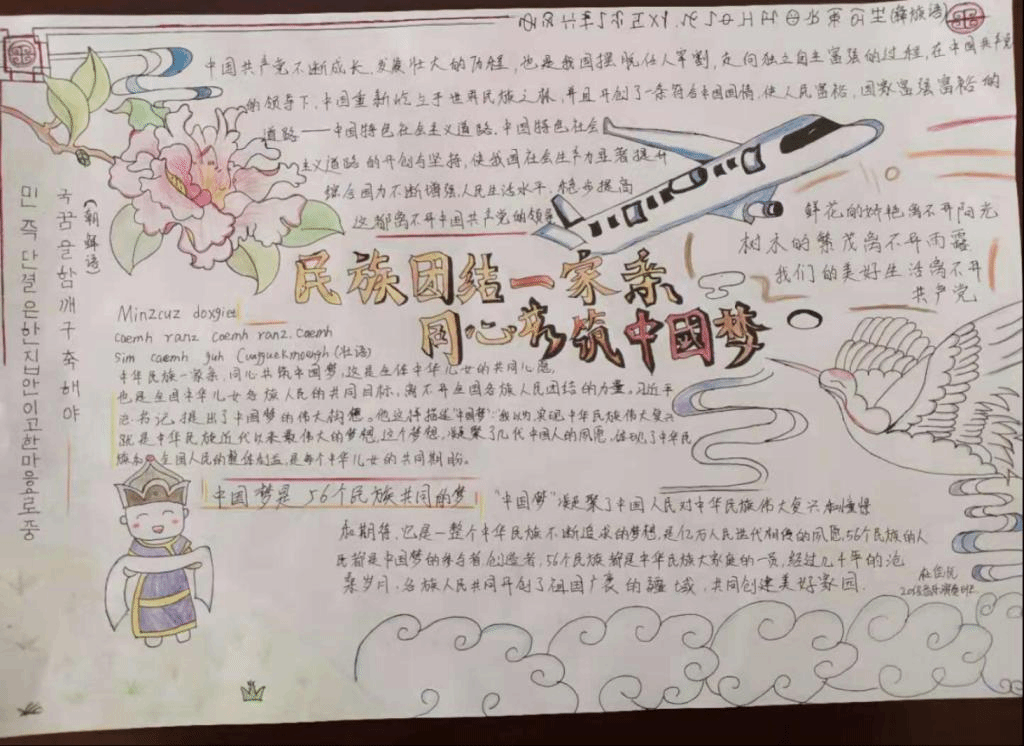 (彝族语)
中国共产党不断成长、发展壮大的历程,也是我国摆脱任人宰割,走向独立自主富强的过程,在中国共产党
的领导下,中国重新屹立于世界民族之林,并且开创了一条符合中国国情,使人民富裕,国家富强富裕的
道路——中国特色社会主义道路.中国特色社会
主义道路的开创与坚持,使我国社会生产力显著提升
综合国力不断增强,人民生活水平,稳步提高
这都离不开中国共产党的领导
鲜花的娇艳离不开阳光
树木的繁茂离不开雨露
我们的美好生活离不开
共产党
민족단결은한집안이고한마음으로중
국꿈을함깨구축해야
(朝鲜语)
民族团结一家亲
同心共筑中国梦
Minzcuz doxgiet
caemh ranz caemh ranz.caemh
sim caemh guh Cungguekmoengh(壮语)
中华民族一家亲,同心共筑中国梦,这是全体中华儿女的共同心愿,
也是全国中华儿女各族人民的共同目标,离不开全国各族人民团结的力量,习近平
总书记,提出了中国梦的伟大构想。他这样描述"中国梦":我以为实现中华民族伟大复兴
就是中华民族近代以来最伟大的梦想,这个梦想,凝聚了几代中国人的夙愿,体现了中华民
族和全国人民的整体利益,是每个中华儿女的共同期盼。
中国梦是 56个民族共同的梦
"中国梦"凝聚了中国人民对中华民族伟大复兴和憧憬
和期待,它是一整个中华民族不断追求的梦想,是亿万人民世代相传的夙愿,56个民族的人
民都是中国梦的参与者,创造者,56个民族都是中华民族大家庭的一员,经过几千年的沧
桑岁月,各族人民共同开创了祖国广袤的疆域,共同创建美好家园.